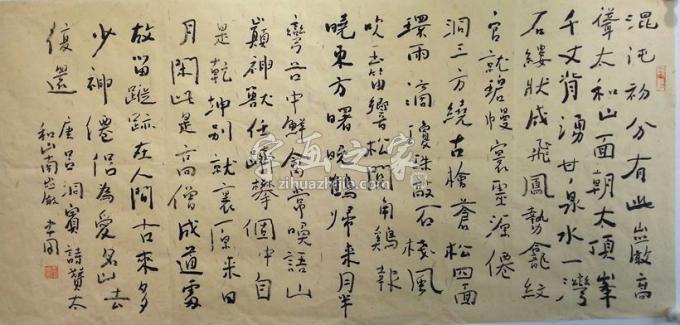 混沌初分有此巖高
聳太和山面朝太頂峯
千丈背湧甘泉水一灣
石縷狀成飛鳳勢龕紋
官就碧幔靈源僊
洞三方繞古檜蒼松四面
環雨滴瓊珠敲石棧風
吹玉笛響松關角鷄報
曉東方曙晚鶴歸來月半
彎谷中鮮禽常喚語山
巔神獸任躋攀個中自
是乾坤別就裏原来日
月閑此是高僧成道處
故留蹤跡在人間古來多
少神僊侣為愛名山去
復還
唐吕洞賓詩贊太
和山南巖
字画之家
zihuazhijia.com